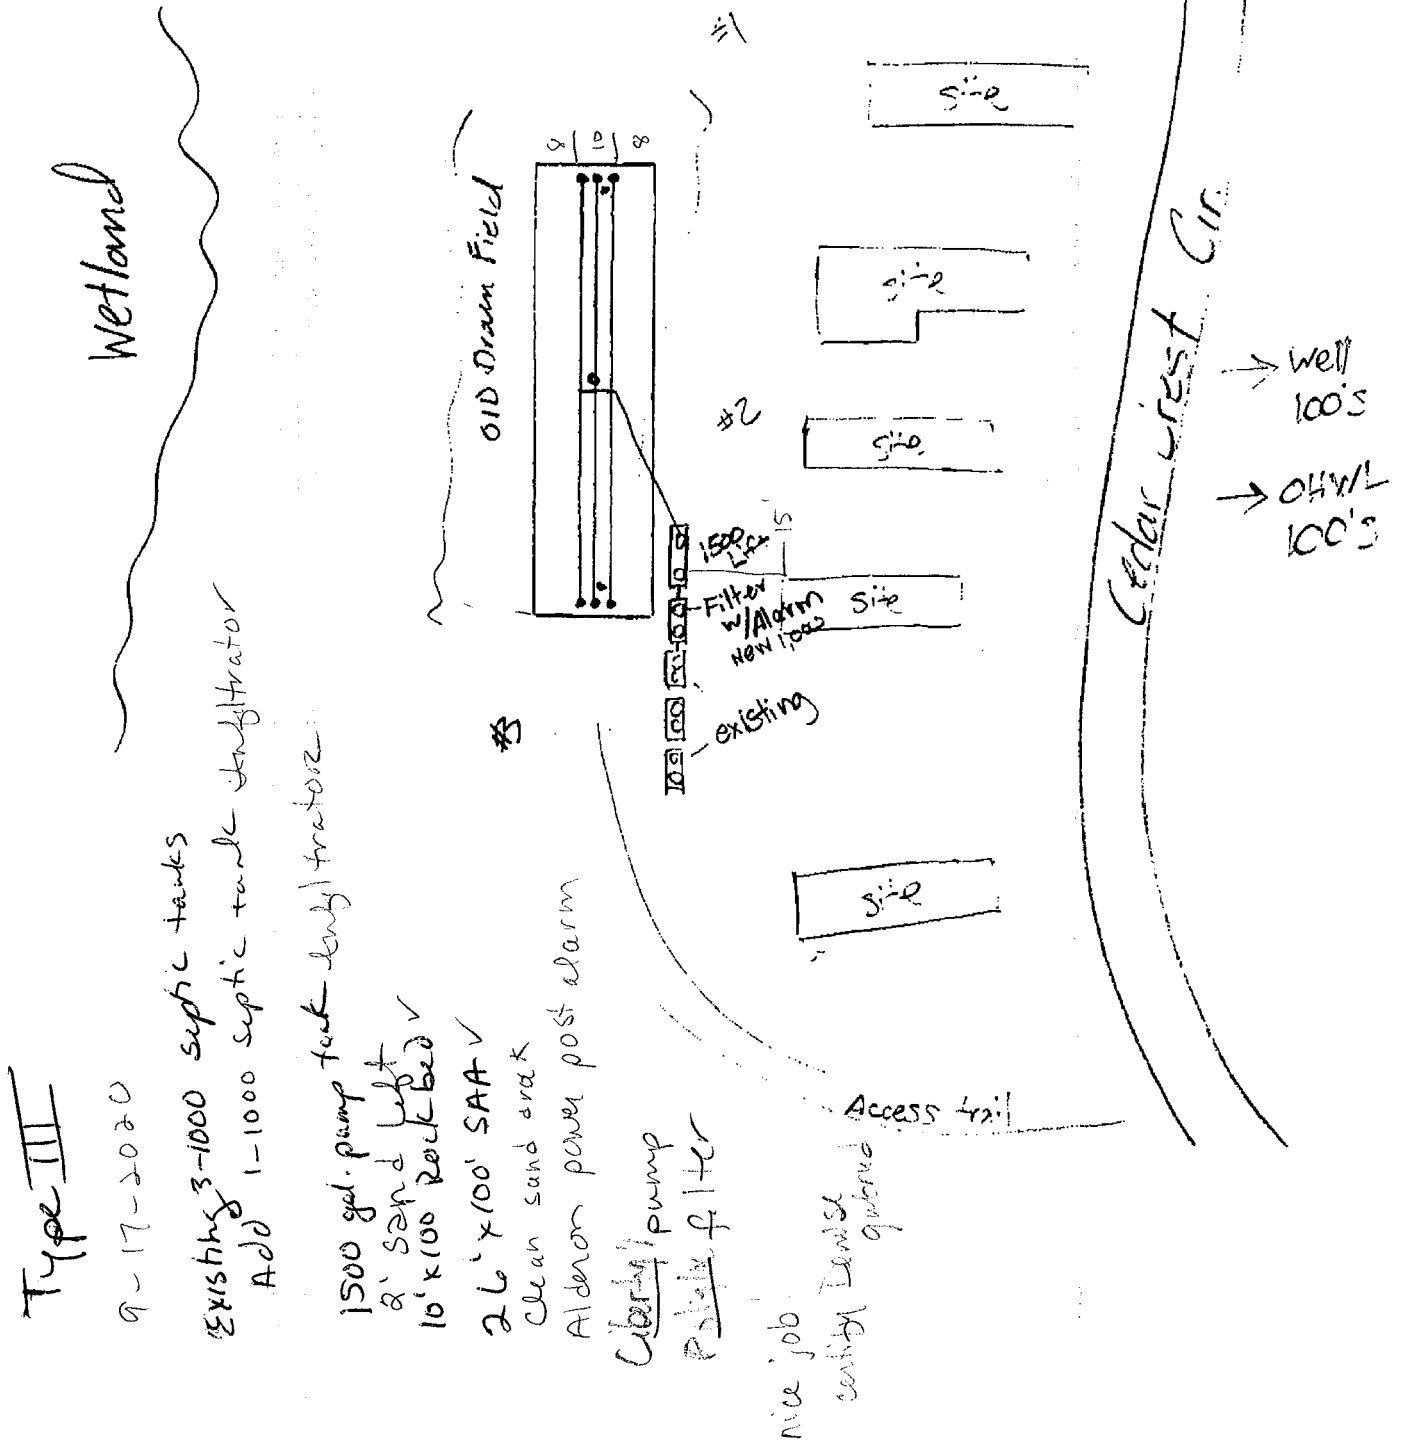 Type III
9-17-2020
Existing 3-1000 septic tanks
Add 1-1000 septic tank Infiltrator
1500 gal. pump tank Infiltrator
2' sand left
10' x 100 Rock bed ✓
26' x 100' SAA ✓
Clean sand and rock
Alderon power post alarm
Liberty pump
Polylok filter
nice job
Wetland
Old Drain Field
8 / 10 / 8
#1
#2
#3
1500
Lift
15'
Filter
w/Alarm
New 1,000
existing
site
site
site
site
site
Access trail
Cedar Crest Cir.
→ Well
100's
→ OHWL
100's